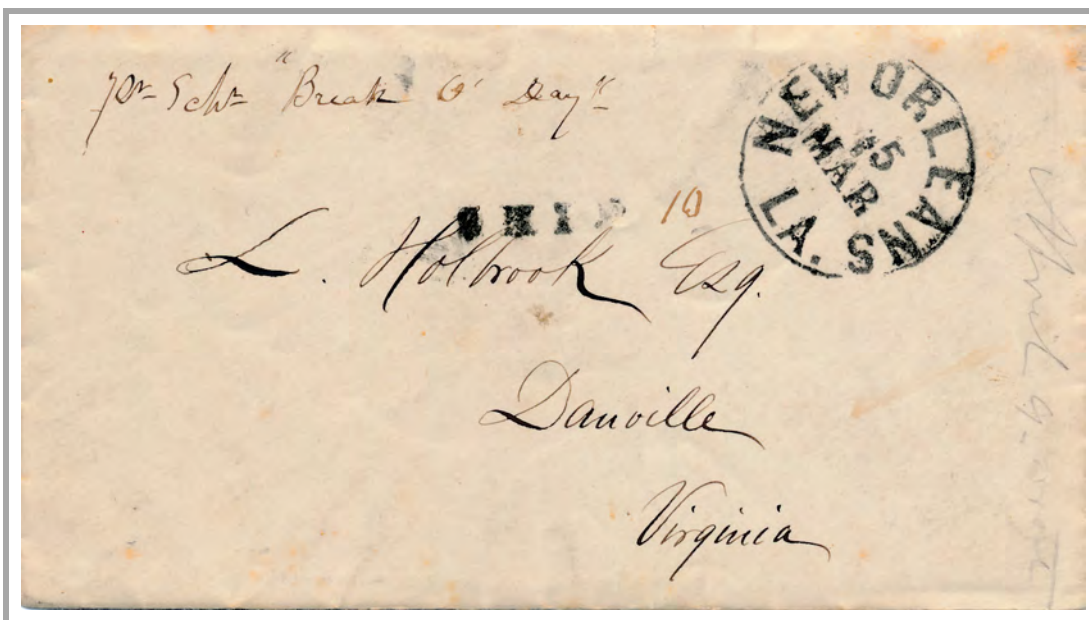 pr Schr "Break O' Day"
NEW ORLEANS
15
MAR
LA.
SHIP
10
L. Holbrook Esq.
Danville
Virginia
April 9 - wrote